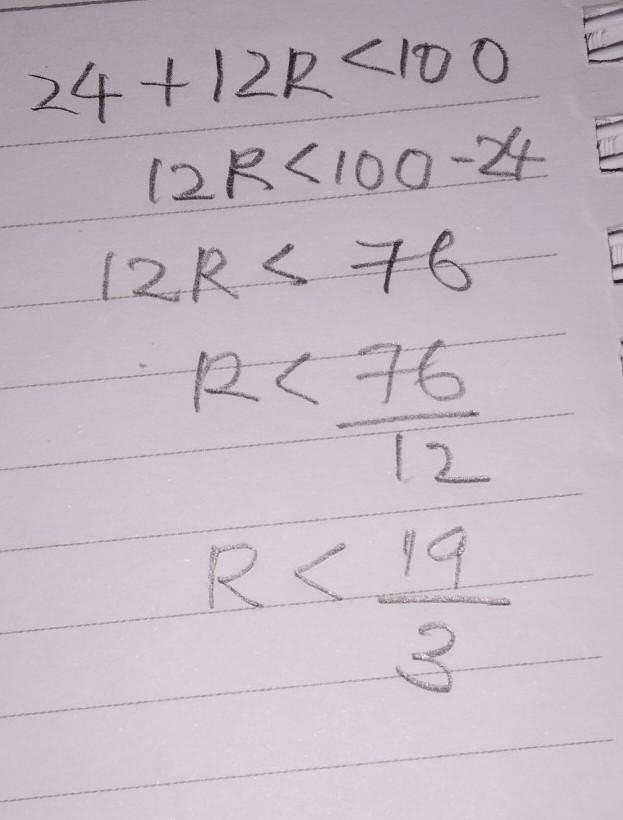 24 + 12R < 100
12R < 100 - 24
12R < 76
R < 76
12
R < 19
3